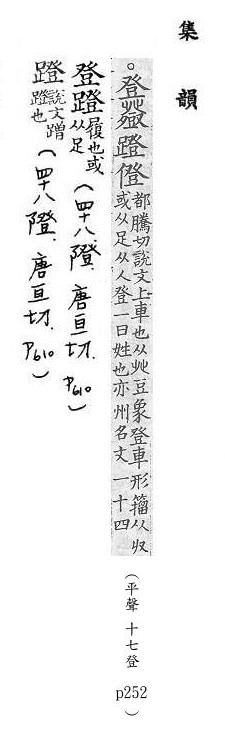 集韻
。登𤼷蹬僜都騰切說文上車也从癶豆象登車形籀从収
或从足从人登一曰姓也亦州名文一十四
(平聲 十七登 p252)
登蹬履也或从足(四十八隥.唐亘切.P610)
蹬說文蹭蹬也(四十八隥.唐亘切.P610)